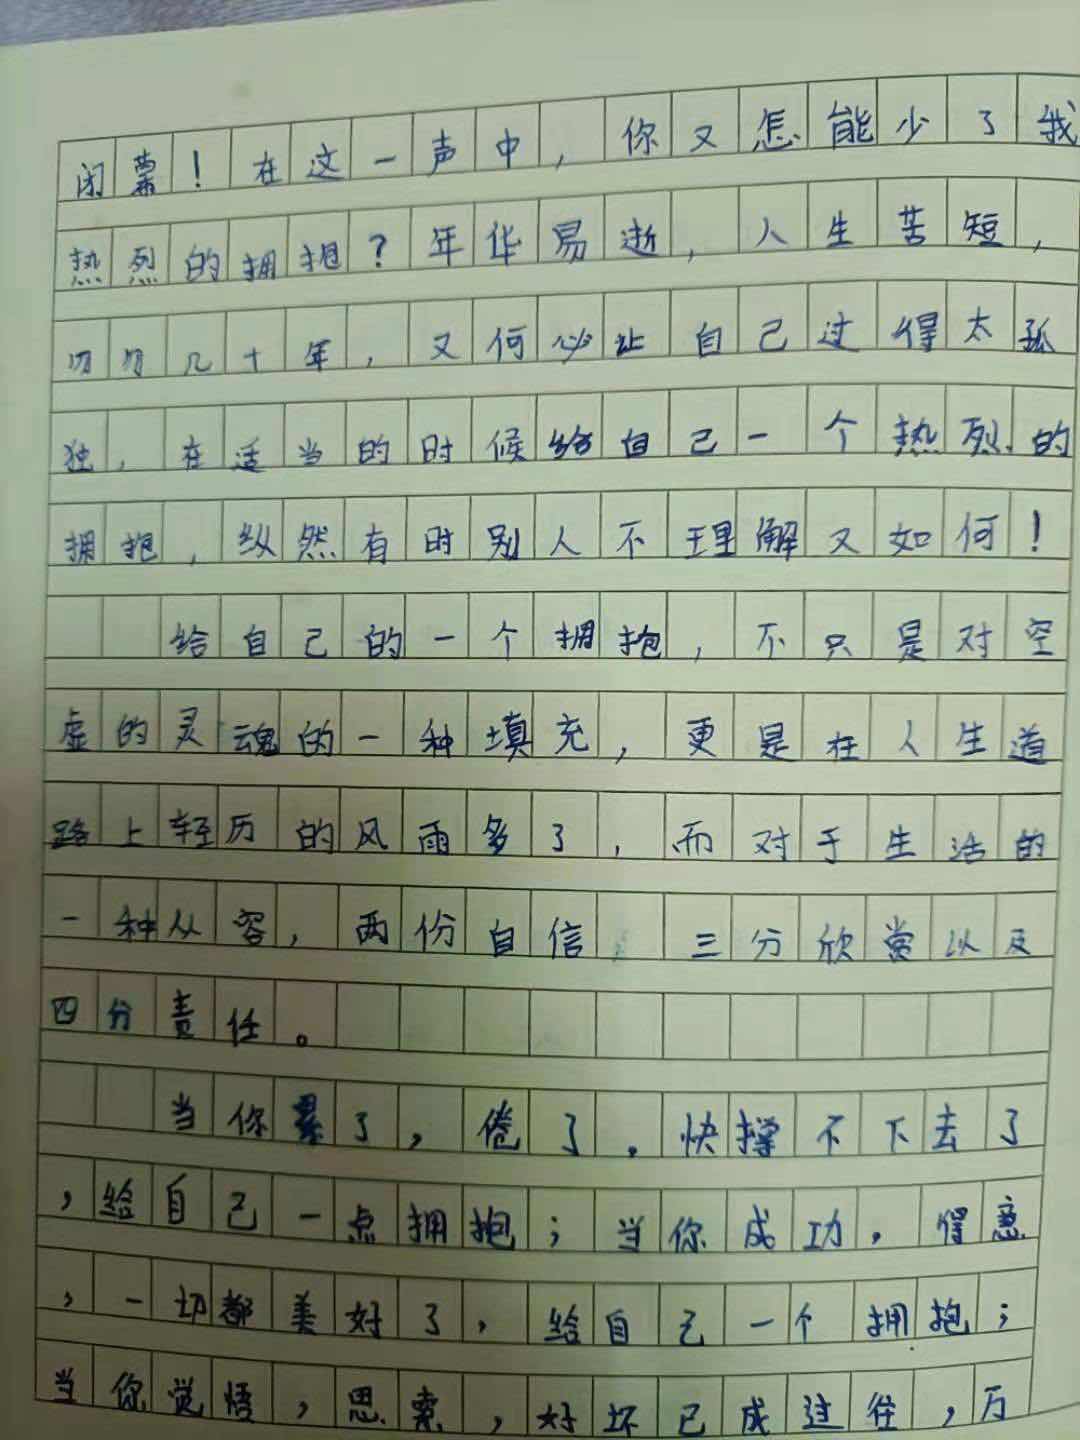 闭幕！在这一声中，你又怎能少了我
热烈的拥抱？年华易逝，人生苦短，
匆匆几十年，又何必让自己过得太孤
独，在适当的时候给自己一个热烈的
拥抱，纵然有时别人不理解又如何！
给自己的一个拥抱，不只是对空
虚的灵魂的一种填充，更是在人生道
路上轻历的风雨多了，而对于生活的
一种从容，两份自信，三分欣赏以及
四分责任。
当你累了，倦了，快撑不下去了
，给自己一点拥抱；当你成功，得意
，一切都美好了，给自己一个拥抱；
当你觉悟，思索，好坏已成过往，万